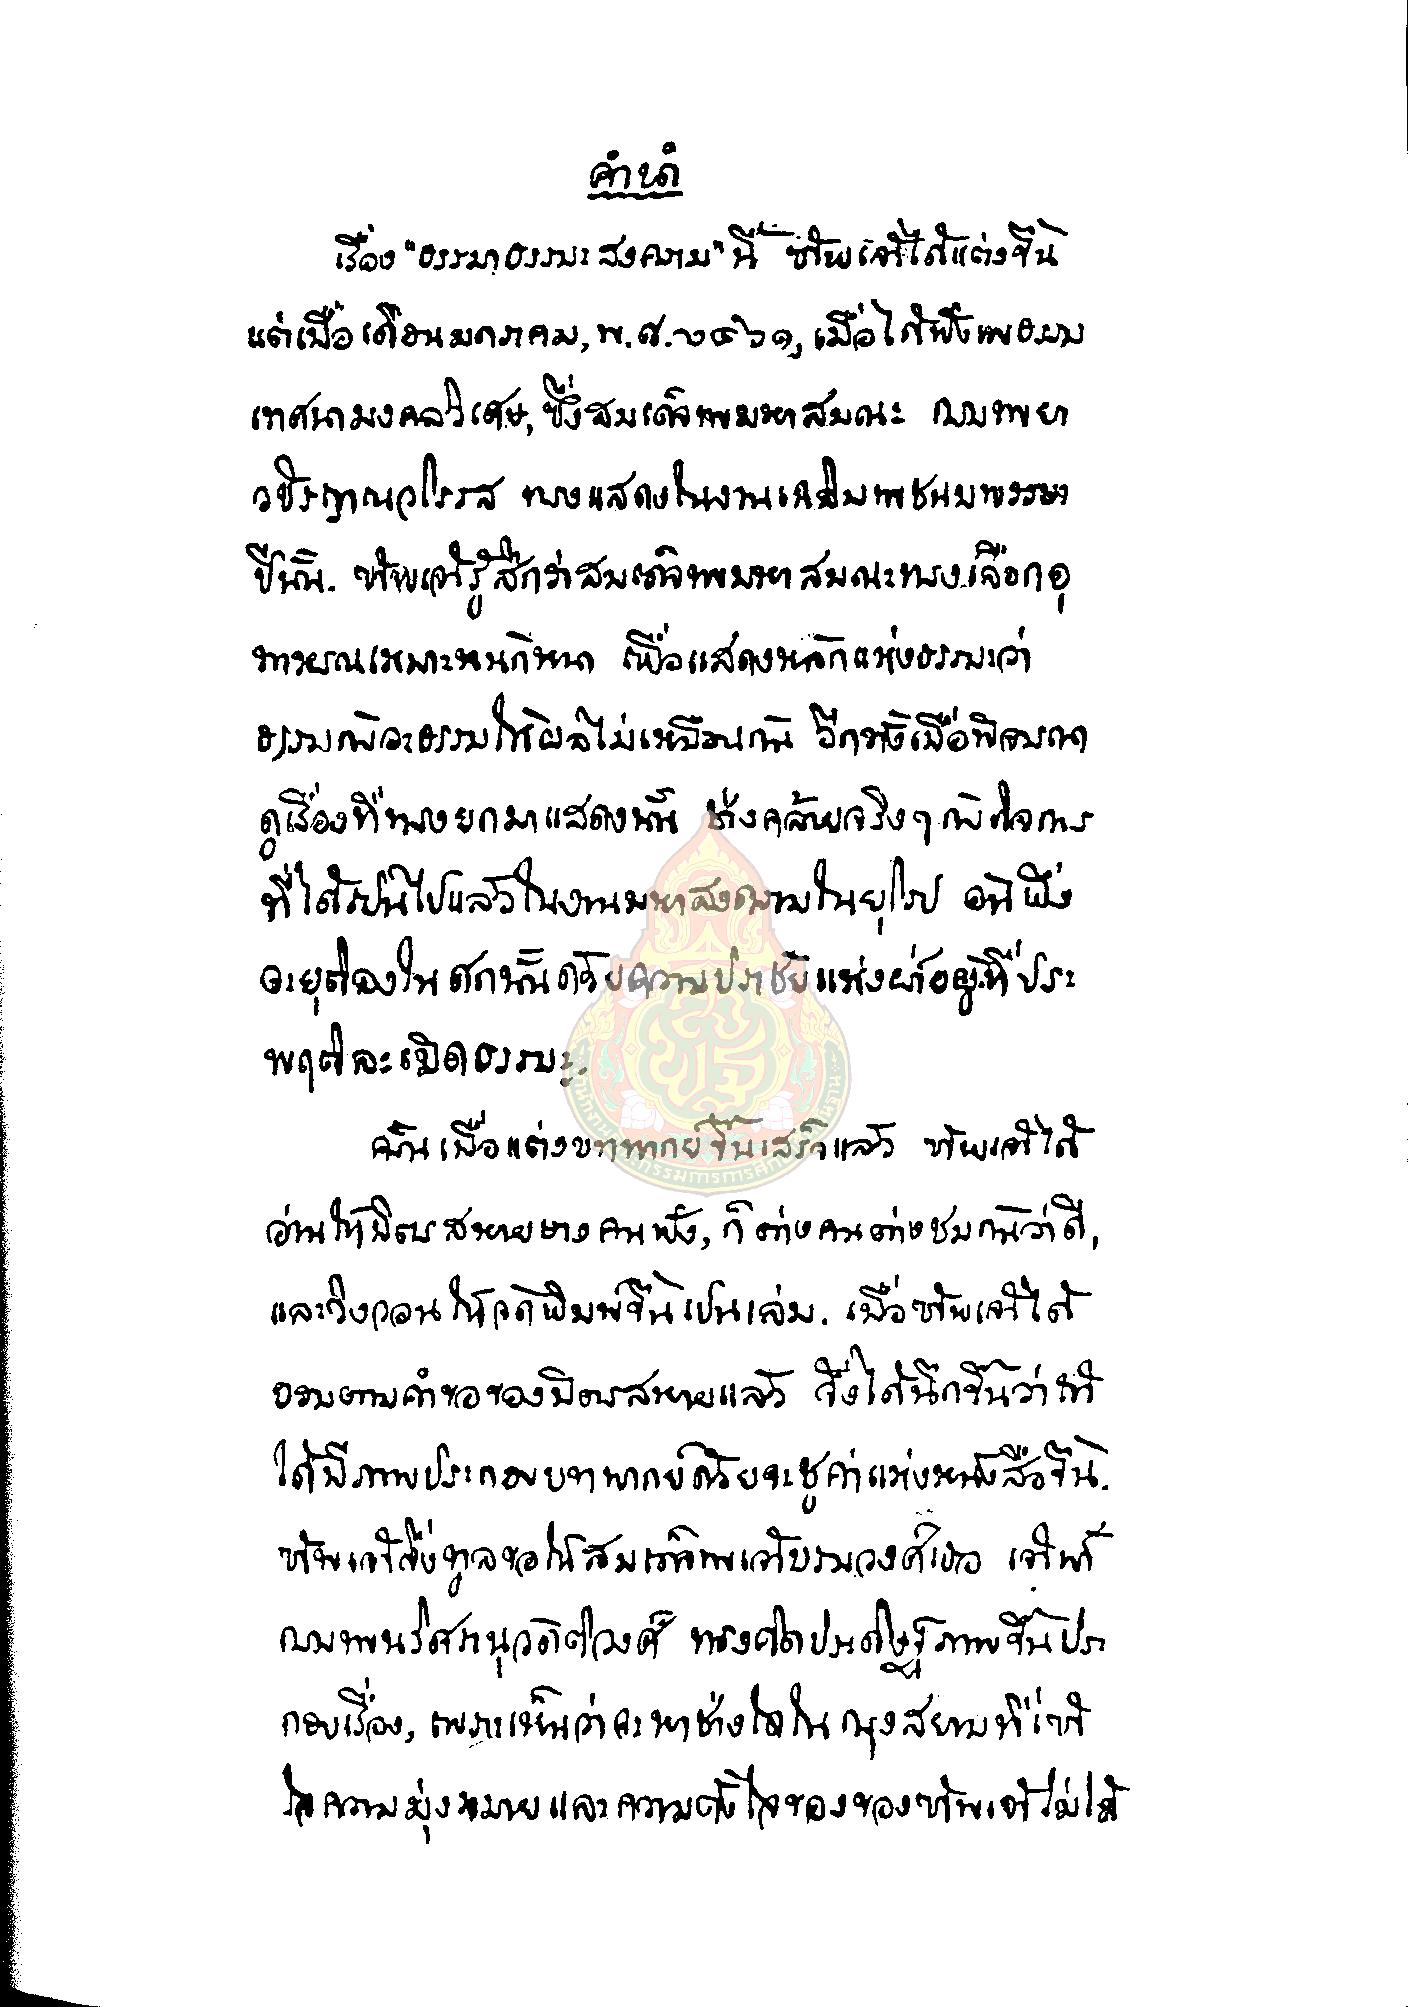 คำนำ
เรื่อง "ธรรมาธรรมะสงคราม" นี้ ข้าพเจ้าได้แต่งขึ้น
แต่เมื่อเดือนมกราคม, พ.ศ. ๒๔๖๑, เมื่อได้ฟังพระธรรม
เทศนามงคลวิเศษ, ซึ่งสมเด็จพระมหาสมณะ กรมพระยา
วชิรญาณวโรรส ทรงแสดงในงานเฉลิมพระชนมพรรษา
ปีนั้น. ข้าพเจ้ารู้สึกว่าสมเด็จพระมหาสมณะทรงเลือกอุ
ทาหรณ์เหมาะหนักหนา เพื่อแสดงหลักแห่งธรรมะว่า
ธรรมกับอะธรรมให้ผลไม่เหมือนกัน อีกทั้งเมื่อพิจารณา
ดูเรื่องที่ทรงยกมาแสดงนั้น ช่างคล้ายจริงๆ กับกิจการ
ที่ได้เป็นไปแล้วในงานมหาสงครามในยุโรป อันพึ่ง
จะยุติลงในศกนั้นด้วยความปราชัยแห่งฝ่ายผู้ที่ประ
พฤติละเมิดธรรมะ.
ครั้นเมื่อแต่งบทพากย์ขึ้นเสร็จแล้ว ข้าพเจ้าได้
อ่านให้มิตรสหายบางคนฟัง, ก็ต่างคนต่างชมกันว่าดี,
และวิงวอนให้จัดพิมพ์ขึ้นเป็นเล่ม. เมื่อข้าพเจ้าได้
ยอมตามคำขอของมิตรสหายแล้ว จึ่งได้นึกขึ้นว่าถ้า
ได้มีภาพประกอบบทพากย์ด้วยจะชูค่าแห่งหนังสือขึ้น.
ข้าพเจ้าจึ่งทูลขอให้สมเด็จพระเจ้าบรมวงศ์เธอ เจ้าฟ้า
กรมพระนริศรานุวัดติวงศ์ ทรงคิดประดิษฐ์ภาพขึ้นประ
กอบเรื่อง, เพราะเห็นว่าจะหาช่างใดในกรุงสยามที่เข้า
ใจความมุ่งหมายและความตั้งใจของของข้าพเจ้าไม่ได้